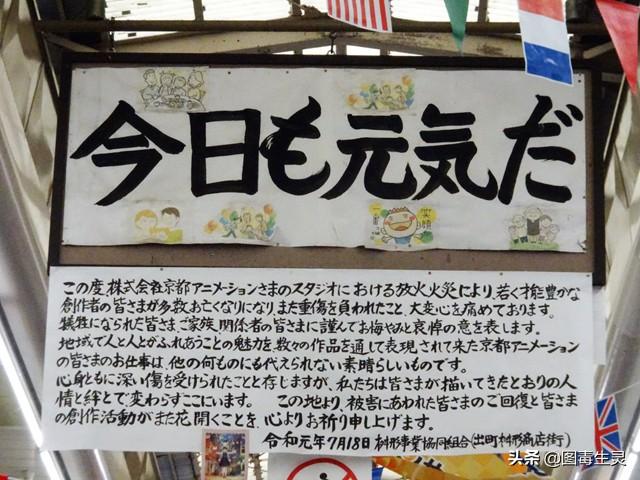 今日も元気だ
笑顔
一番
この度、株式会社京都アニメーションさまのスタジオにおける放火火災により、若く才能豊かな
創作者の皆さまが多数お亡くなりになり、また重傷を負われたこと、大変心を痛めております。
犠牲になられた皆さま、ご家族、関係者の皆さまに謹んでお悔やみと哀悼の意を表します。
地域で人と人とがふれあうことの魅力を、数々の作品を通して表現されて来た京都アニメーション
の皆さまのお仕事は、他の何ものにも代えられない素晴らしいものです。
心身ともに深い傷を受けられたことと存じますが、私たちは皆さまが描いてきたとおりの人
情と絆とで変わらずここにいます。 この地より、被害にあわれた皆さまのご回復と皆さま
の創作活動がまた花開くことを、心よりお祈り申し上げます。
令和元年7月18日 桝形事業協同組合(出町桝形商店街)
头条 @图毒生灵